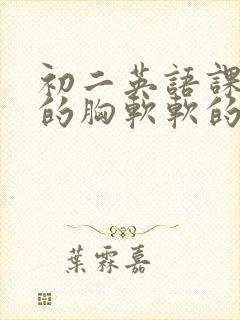 初二英語課
的胸軟軟的
葉霖嘉